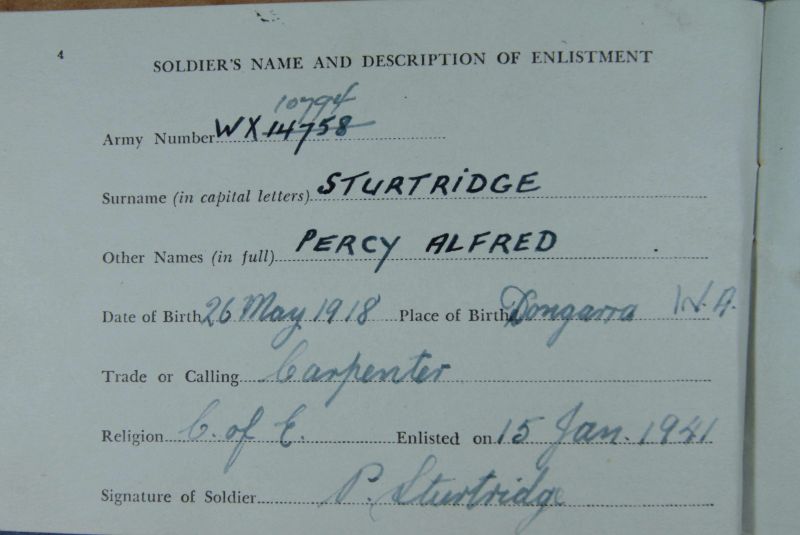 4
SOLDIER'S NAME AND DESCRIPTION OF ENLISTMENT
10794
Army Number WX 14758
Surname (in capital letters) STURTRIDGE
Other Names (in full) PERCY ALFRED
Date of Birth 26 May 1918 Place of Birth Dongarra W.A.
Trade or Calling Carpenter
Religion C. of E. Enlisted on 15 Jan. 1941
Signature of Soldier P. Sturtridge